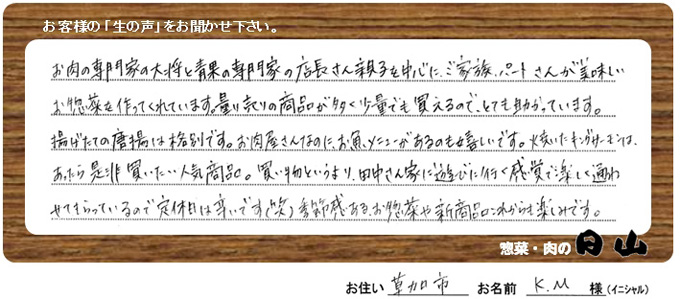 お客様の「生の声」をお聞かせ下さい。
お肉の専門家の大将と青果の専門家の店長さん親子を中心に、ご家族、パートさんが美味しい
お惣菜を作ってくれています。量り売りの商品が多く少量でも買えるので、とても助かっています。
揚げたての唐揚は格別です。お肉屋さんなのに、お魚メニューがあるのも嬉しいです。焼いたキングサーモンは、
あったら是非買いたい人気商品。買い物というより、田中さん家に遊びに行く感覚で楽しく通わ
せてもらっているので定休日は辛いです(笑)季節感ある、お惣菜や新商品これからも楽しみです。
惣菜・肉の日山
お住い 草加市 お名前 K.M 様(イニシャル)